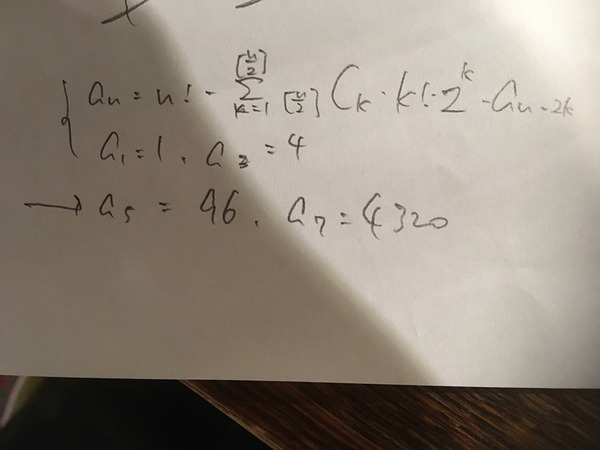 aₙ = n! - Σ_{k=1}^{[n/2]} [n/2]Cₖ・k!・2ᵏ・aₙ₋₂ₖ
a₁ = 1, a₃ = 4
→ a₅ = 96, a₇ = 4320